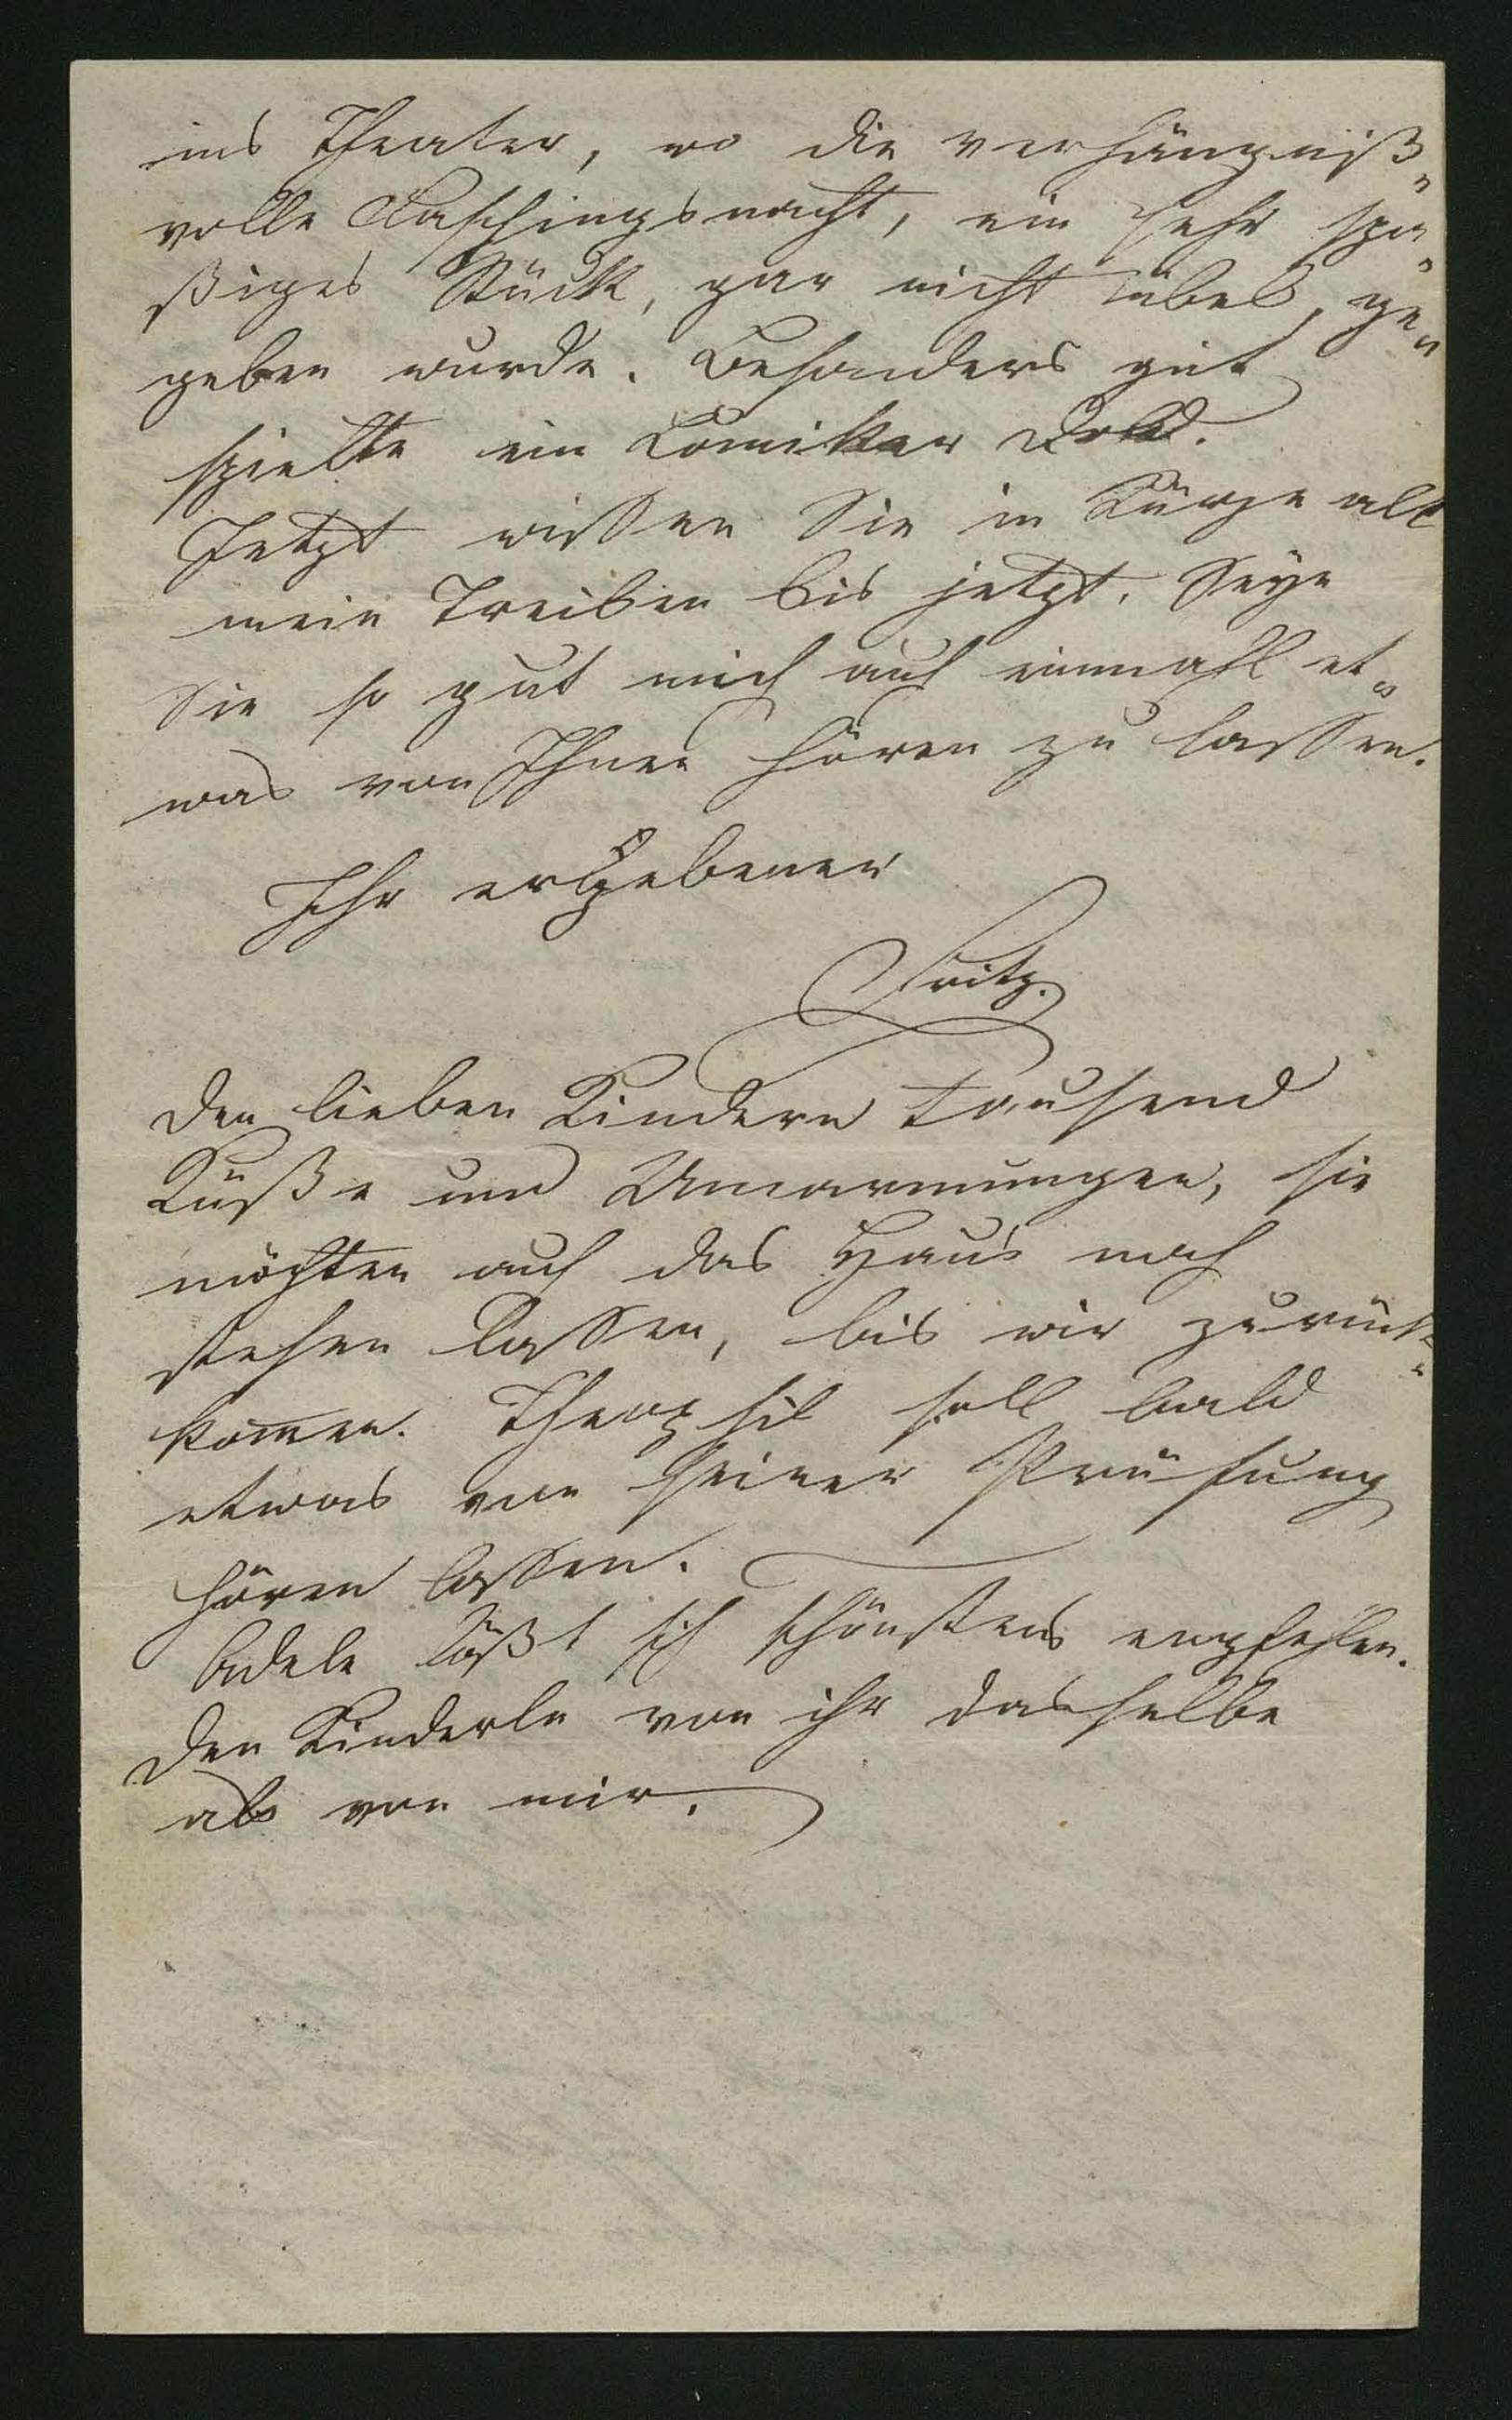 ins Theater, wo die verhängniß„
volle Faschingsnacht, ein sehr spa„
ßiges Stück, gar nicht übel, ge„
geben wurde. Besonders gut
spielte ein Komiker Dold.
Jetzt wissen Sie in Kürze all
mein Treiben bis jetzt. Seyn
Sie so gut mich auch einmahl et„
was von Ihnen hören zu lassen.
Ihr ergebener
Fritz.
Den lieben Kindern tausend
Küße und Umarmungen, sie
möchten auch das Haus noch
stehen lassen, bis wir zurück„
kommen. Theophil soll bald
etwas von seiner Prüfung
hören lassen.
Adele läßt sich schönstens empfehlen.
Den Kinderln von ihr dasselbe
als von mir.